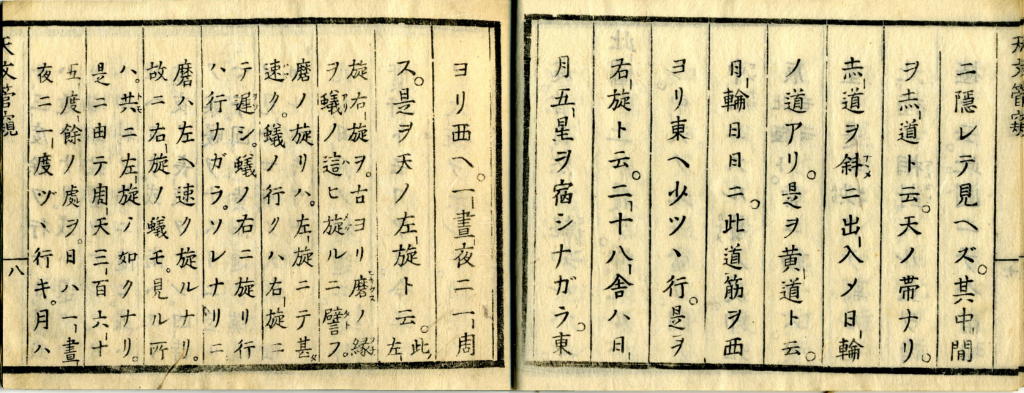 天文管窺
ニ隱レテ見ヘズ。其中間
ヲ赤道ト云。天ノ帶ナリ。
赤道ヲ斜ニ出入メ日輪
ノ道アリ。是ヲ黄道ト云。
日輪日日ニ。此道筋ヲ西
ヨリ東ヘ少ツヽ行。是ヲ
右旋ト云。二十八舎ハ日
月五星ヲ宿シナガラ東
ヨリ西ヘ。一晝夜ニ一周
ス。是ヲ天ノ左旋ト云。此左
旋右旋ヲ。古ヨリ磨ノ縁
ヲ蟻ノ這ヒ旋ルニ譬フ。
磨ノ旋リハ。左旋ニテ甚
速ク。蟻ノ行クハ。右旋ニ
テ遲シ。蟻ノ右ニ旋リ行
ハ。行ナガラ。ソレナリニ
磨ハ左ヘ速ク旋ルナリ。
故ニ右旋ノ蟻モ。見ル所
ハ。共ニ左旋ノ如クナリ。
是ニ由テ周天三百六十
五度餘ノ處ヲ。日ハ一晝
夜ニ一度ヅヽ行キ。月ハ
天文管窺
八